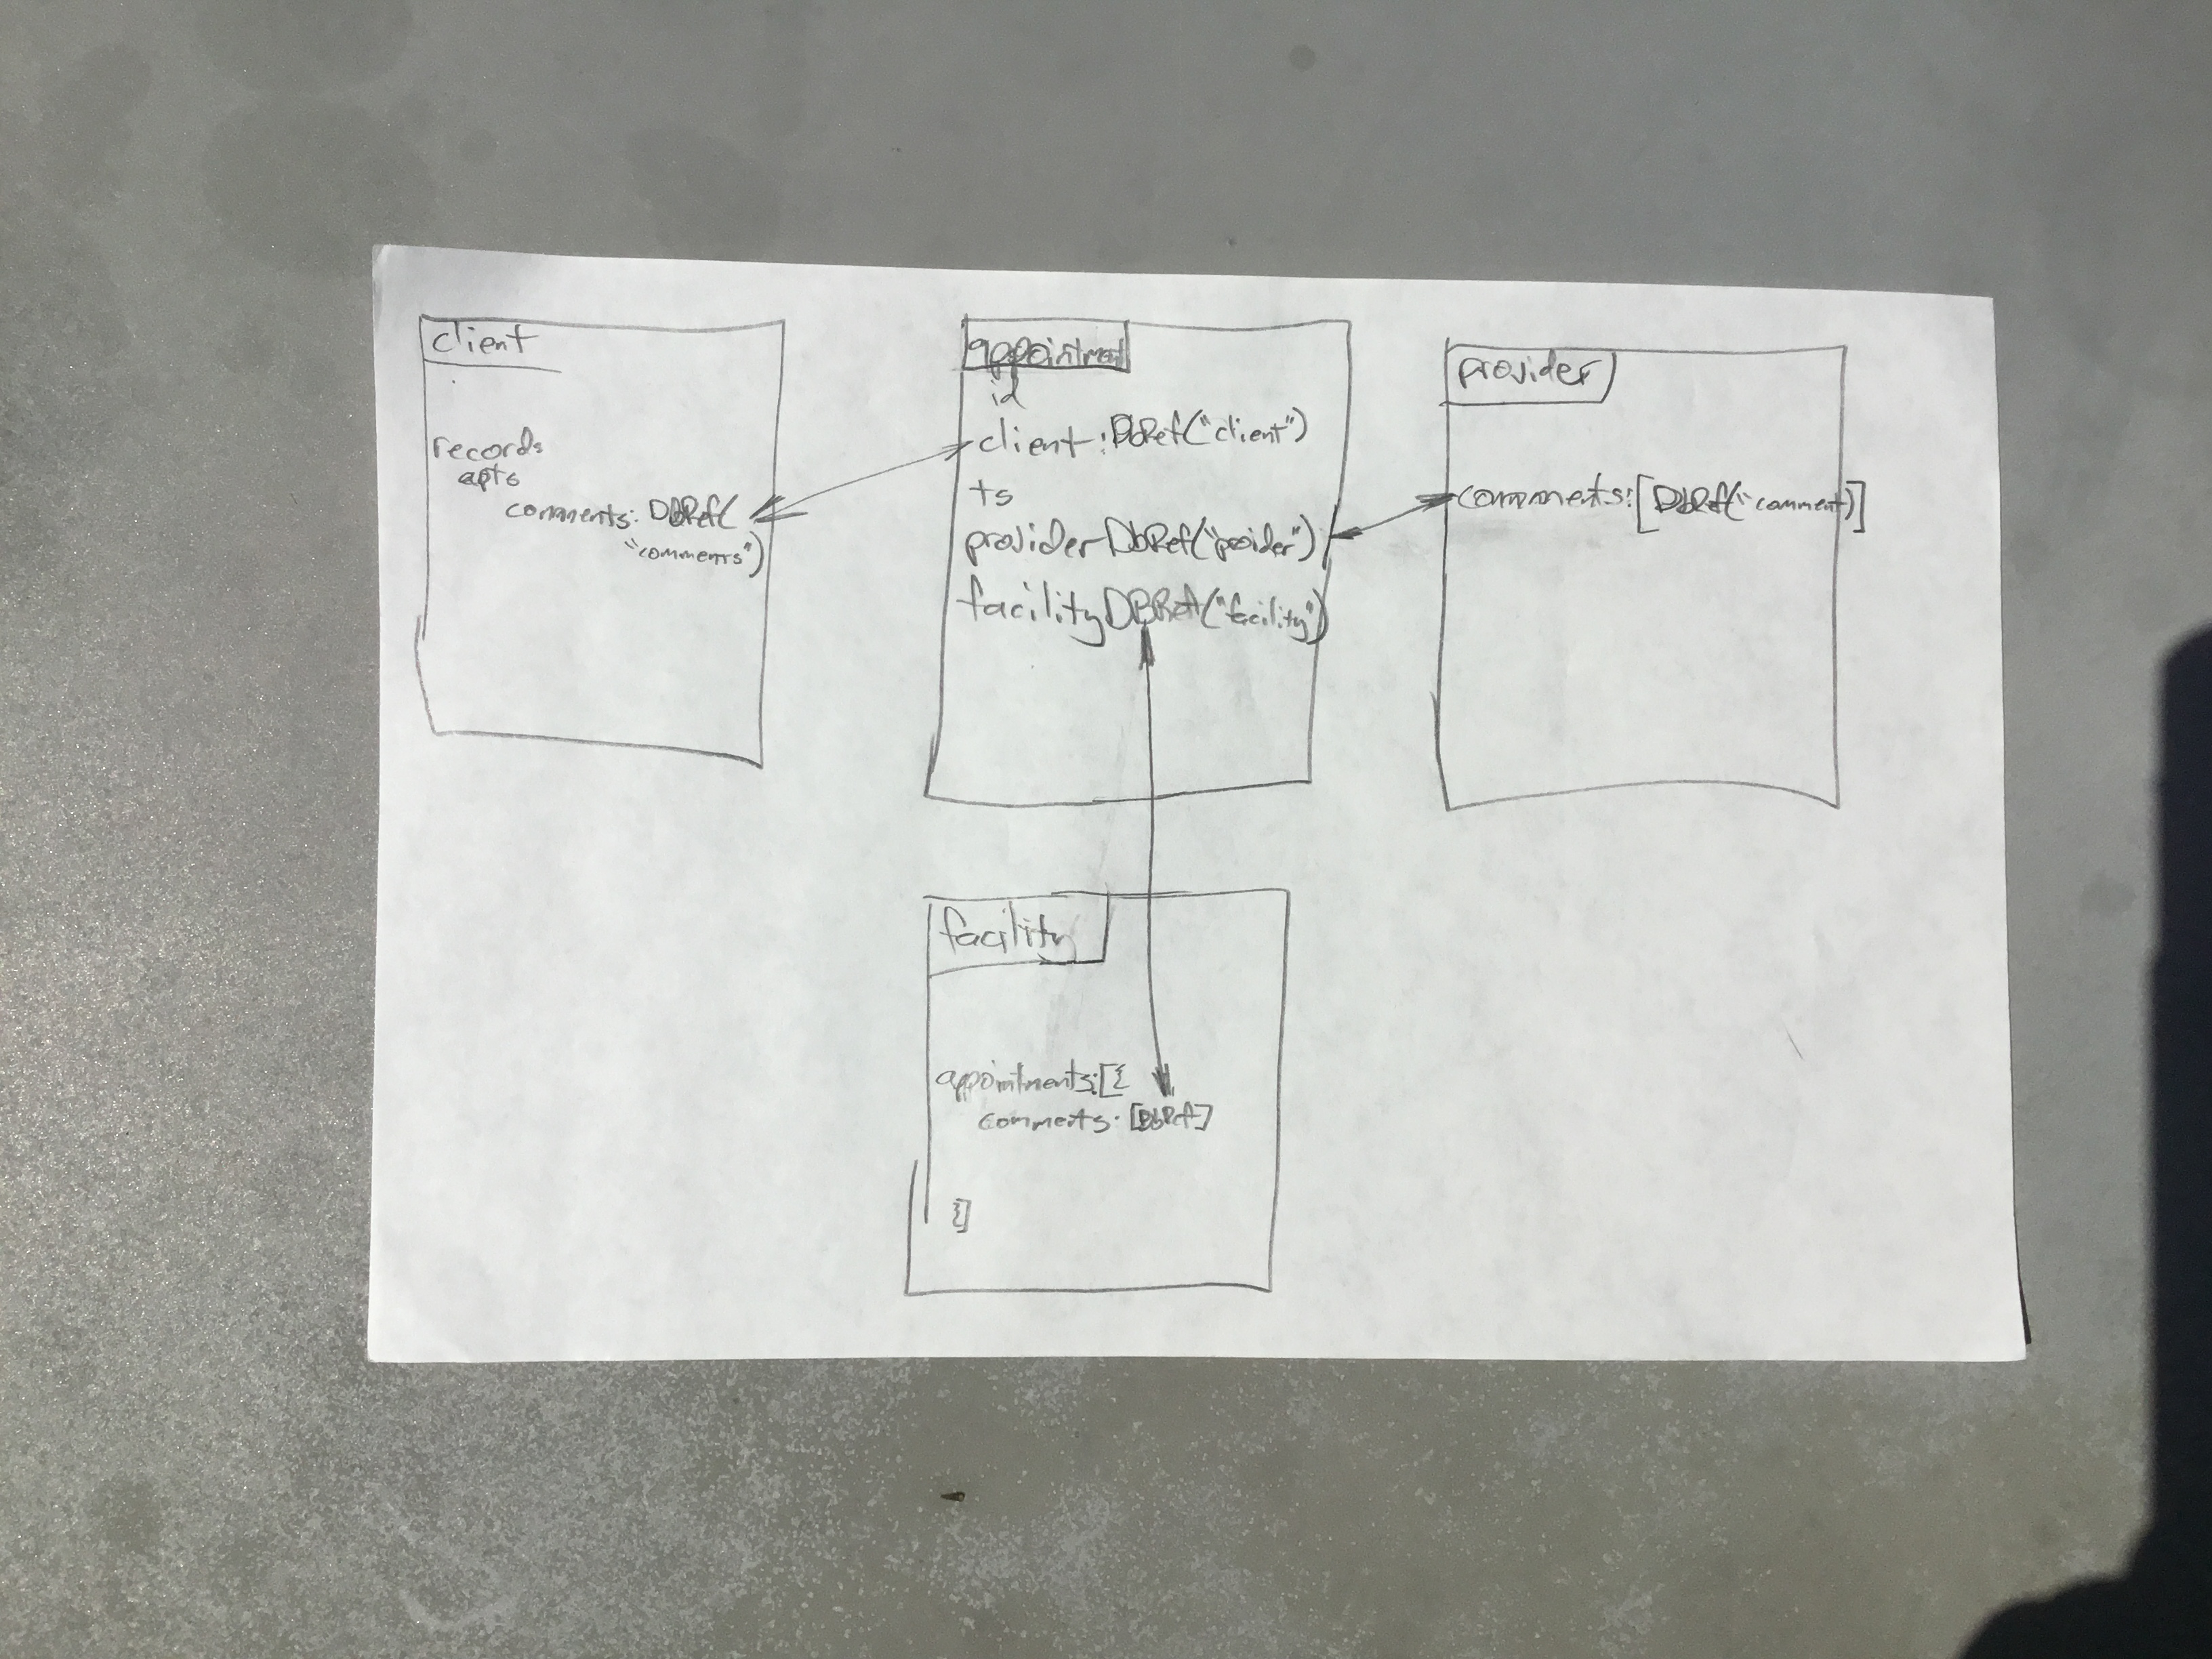 client
records
apts
comments: DbRef(
"comments")
appointment
id
client: DbRef("client")
ts
provider DbRef("provider")
facility DBRef("facility")
provider
comments: [DbRef("comment)]
facility
appointments: [{
comments: [DbRef]
}]